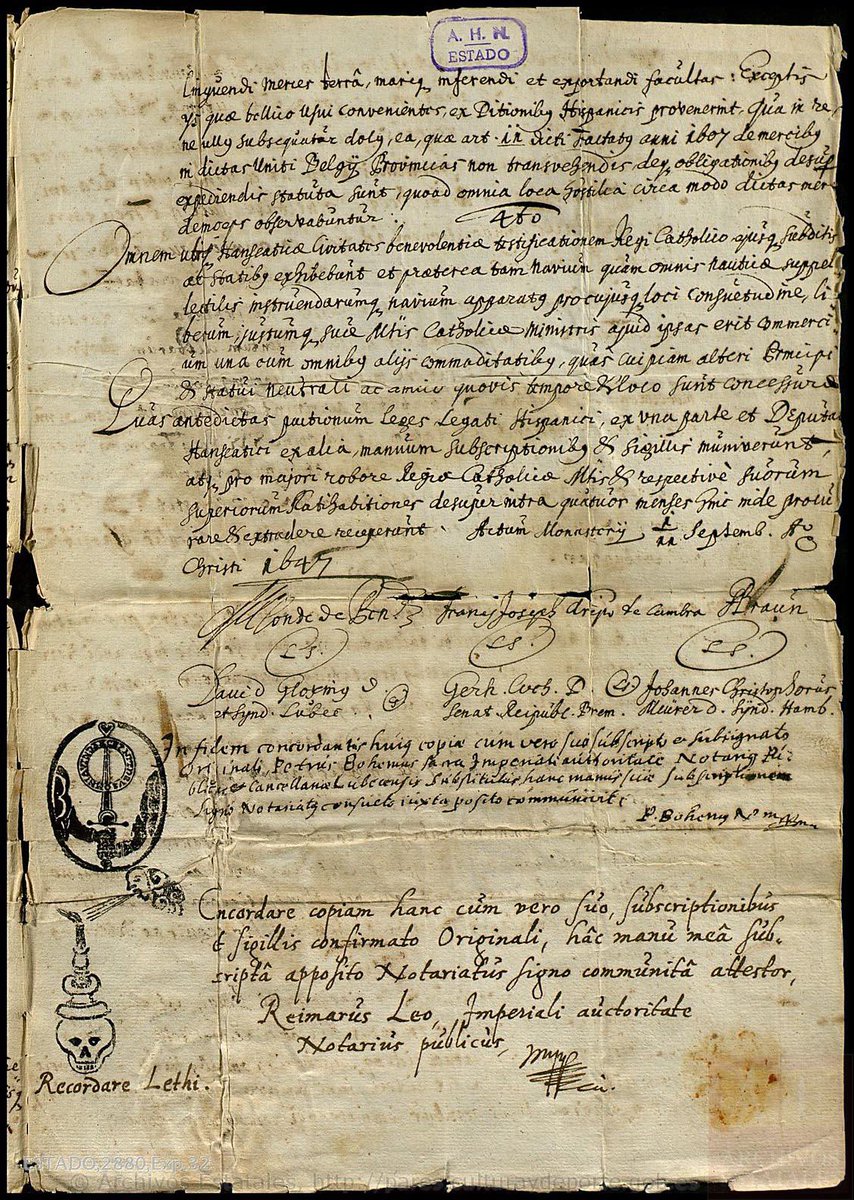 A. H. N.
ESTADO
linquendi merces terrâ, mariq inferendi et exportandi facultas: Exceptis
ijs quæ bellico usui convenientes, ex Ditionibq Hispanicis provenerint, Qua in re,
ne ullq subsequatúr dolq, ea, quæ art. 11 dicti Tractatq anni 1607 de mercibq
in dictas Uniti Belgij Provincias non transvehendis, deq obligationibq desup
expediendis statuta sunt, quoad omnia loca hostilia circa modo dictas mer-
demceps observabuntúr.
4to
Omnem Hanseaticæ Civitates benevolentiæ testificationem Regi Catholico ejusq subditis
ac statibq exhibebunt et præterea tam navium quam omnis nauticæ suppel
lectilis instruendarumq navium apparatq pro cujusq loci consuetudine, li
berum, justumq suæ Mtis Catholicæ Ministris apud ipsas erit commerci
um una cum omnibq alijs commoditatibq, quas cuipiam alteri Principi
& statui neutrali ac amico quovis tempore & loco sunt concessuræ
Quas antedictas pactionum Leges Legati Hispanici, ex vna parte et Deputa
Hanseatici ex alia, manuum subscriptionibq & sigillis muniverunt,
atq pro majori robore Regiæ Catholicæ Mtis & respectivè suorum
superiorum Ratihabitiones desuper intra quatúor menses hinc inde procu
rare & extradere receperunt. Actum Monasterij 1/11 Septemb. Ao
Christi 1647
El Conde de Peñda Franc Joseph de Cambra PBraún
L S. L S. L S.
David Gloxinq D Gerh. Coch. D. LS Johannes Christophorus
et Synd. Lubec Senat. Reipúbl. Brem. Meúrer D. Synd. Hamb.
In fidem concordantis huiq copiæ cum vero suo subscripto & subsignato
Originali Petrus Bohemus sacra Imperiali authoritate Notariq Pú
blicq & Cancellariæ Lubecensis Substitutus hanc manus suæ subscriptionem
signo Notariatq consueto iuxta posito communivit
P. Bohemq N
Concordare copiam hanc cúm vero súo, súbscriptionibus
& sigillis confirmato Originali, hâc manú meâ súb-
scriptâ apposito Notariatus signo communitâ attestor,
Reimarus Leo, Imperiali auctoritate
Notarius públicus,
Recordare Lethi.
ESTADO,2880,Exp.32
© Archivos Estatales, http://pares.culturaydeporte.gob.es